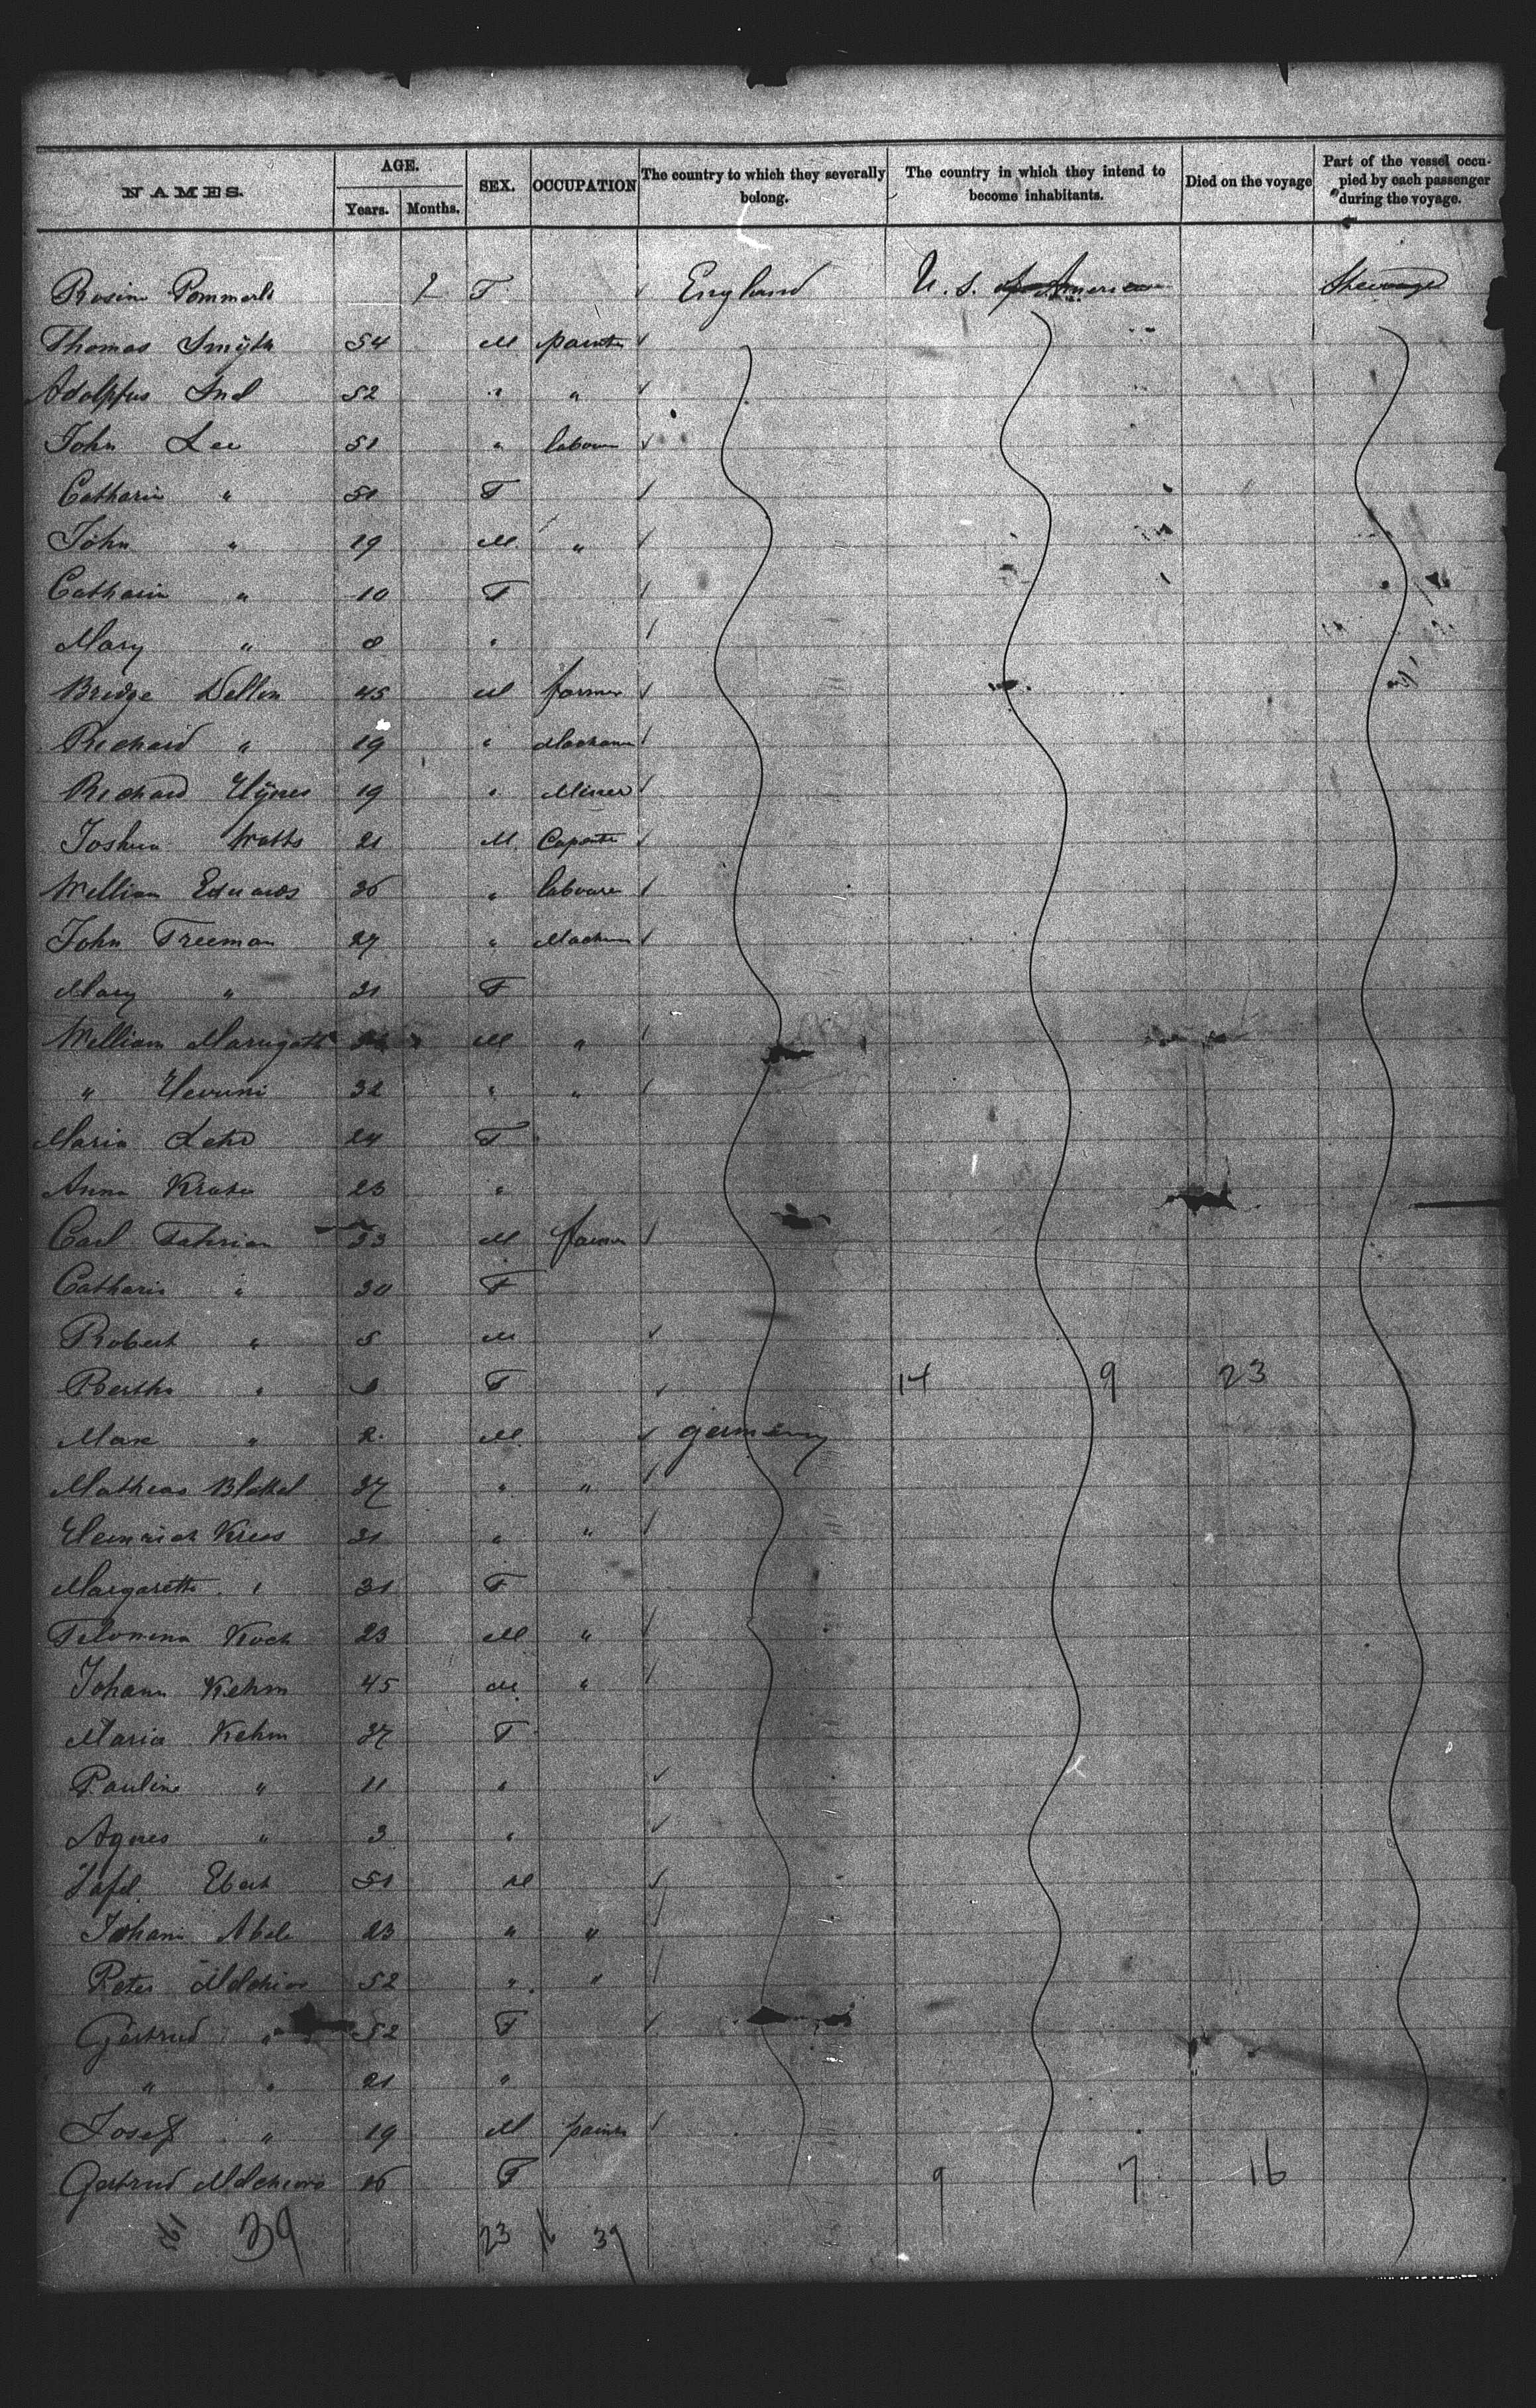 NAMES. AGE. Years. Months. SEX. OCCUPATION The country to which they severally belong. The country in which they intend to become inhabitants. Died on the voyage Part of the vessel occupied by each passenger during the voyage.
Rosina Pommerle F England U. S. of America Steerage
Thomas Smyth 54 M painter
Adolpfus 52 " "
John Lee 51 " labour
Catharin " 51 F
John " 19 M "
Catharin " 10 F
Mary " 8 "
Bridge Dellon 45 M farmer
Richard " 19 "
Richard Hynes 19 " Miner
Joshua Watts 21 M
William Edwards 36 " laboure
John Freeman 27 "
Mary " 31 F
William M "
" 32 " "
Maria 24 F
Anna 23 "
Carl Fabrian 33 M farmer
Catharin " 30 F
Robert " 5 M
Bertha " F 14 9 23
Max " 2 M germany
Mathias 37 " "
Heinrich Kries 31 " "
Margaretta " 31 F
Filomena Koch 23 M "
Johann Kehm 45 M "
Maria Kehm 37 F
Pauline " 11 "
Agnes " 3 "
Ebert 51 M
Johann Abele 23 " "
Peter Melchior 52 " "
Gertrud " 52 F
" " 21 "
Josef " 19 M
Gertrud Melchiors 16 F 9 7 16
39 23 16 39